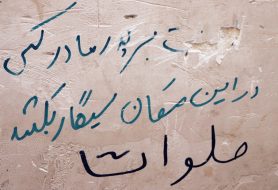 بر پدر مادر کسی
در این مکان سیگار بکشد